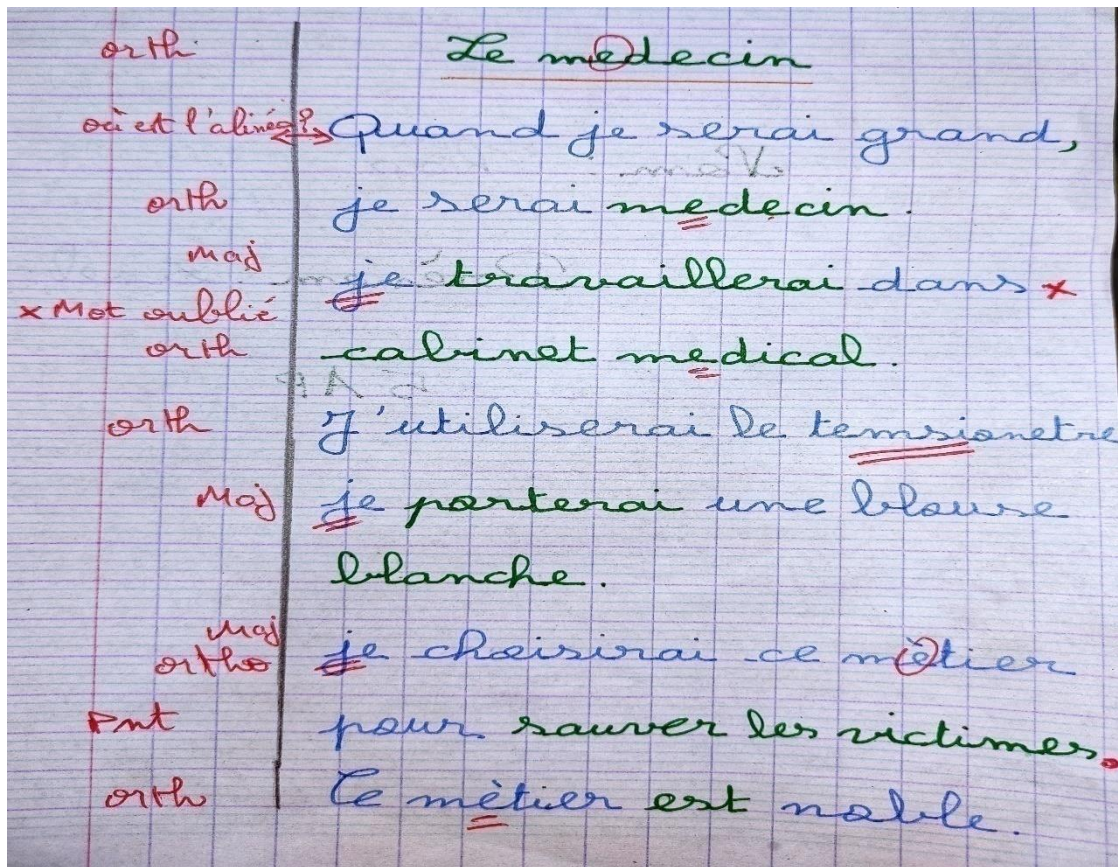 orth Le medecin
où est l'alinéa? Quand je serai grand,
orth je serai medecin.
maj je travaillerai dans x
x Mot oublié
orth cabinet medical.
orth J'utiliserai le temsionetre
Maj je porterai une blouse
blanche.
Maj
ortho je choisirai ce mètier
Pnt pour sauver les victimes.
orth Ce mètier est noble.